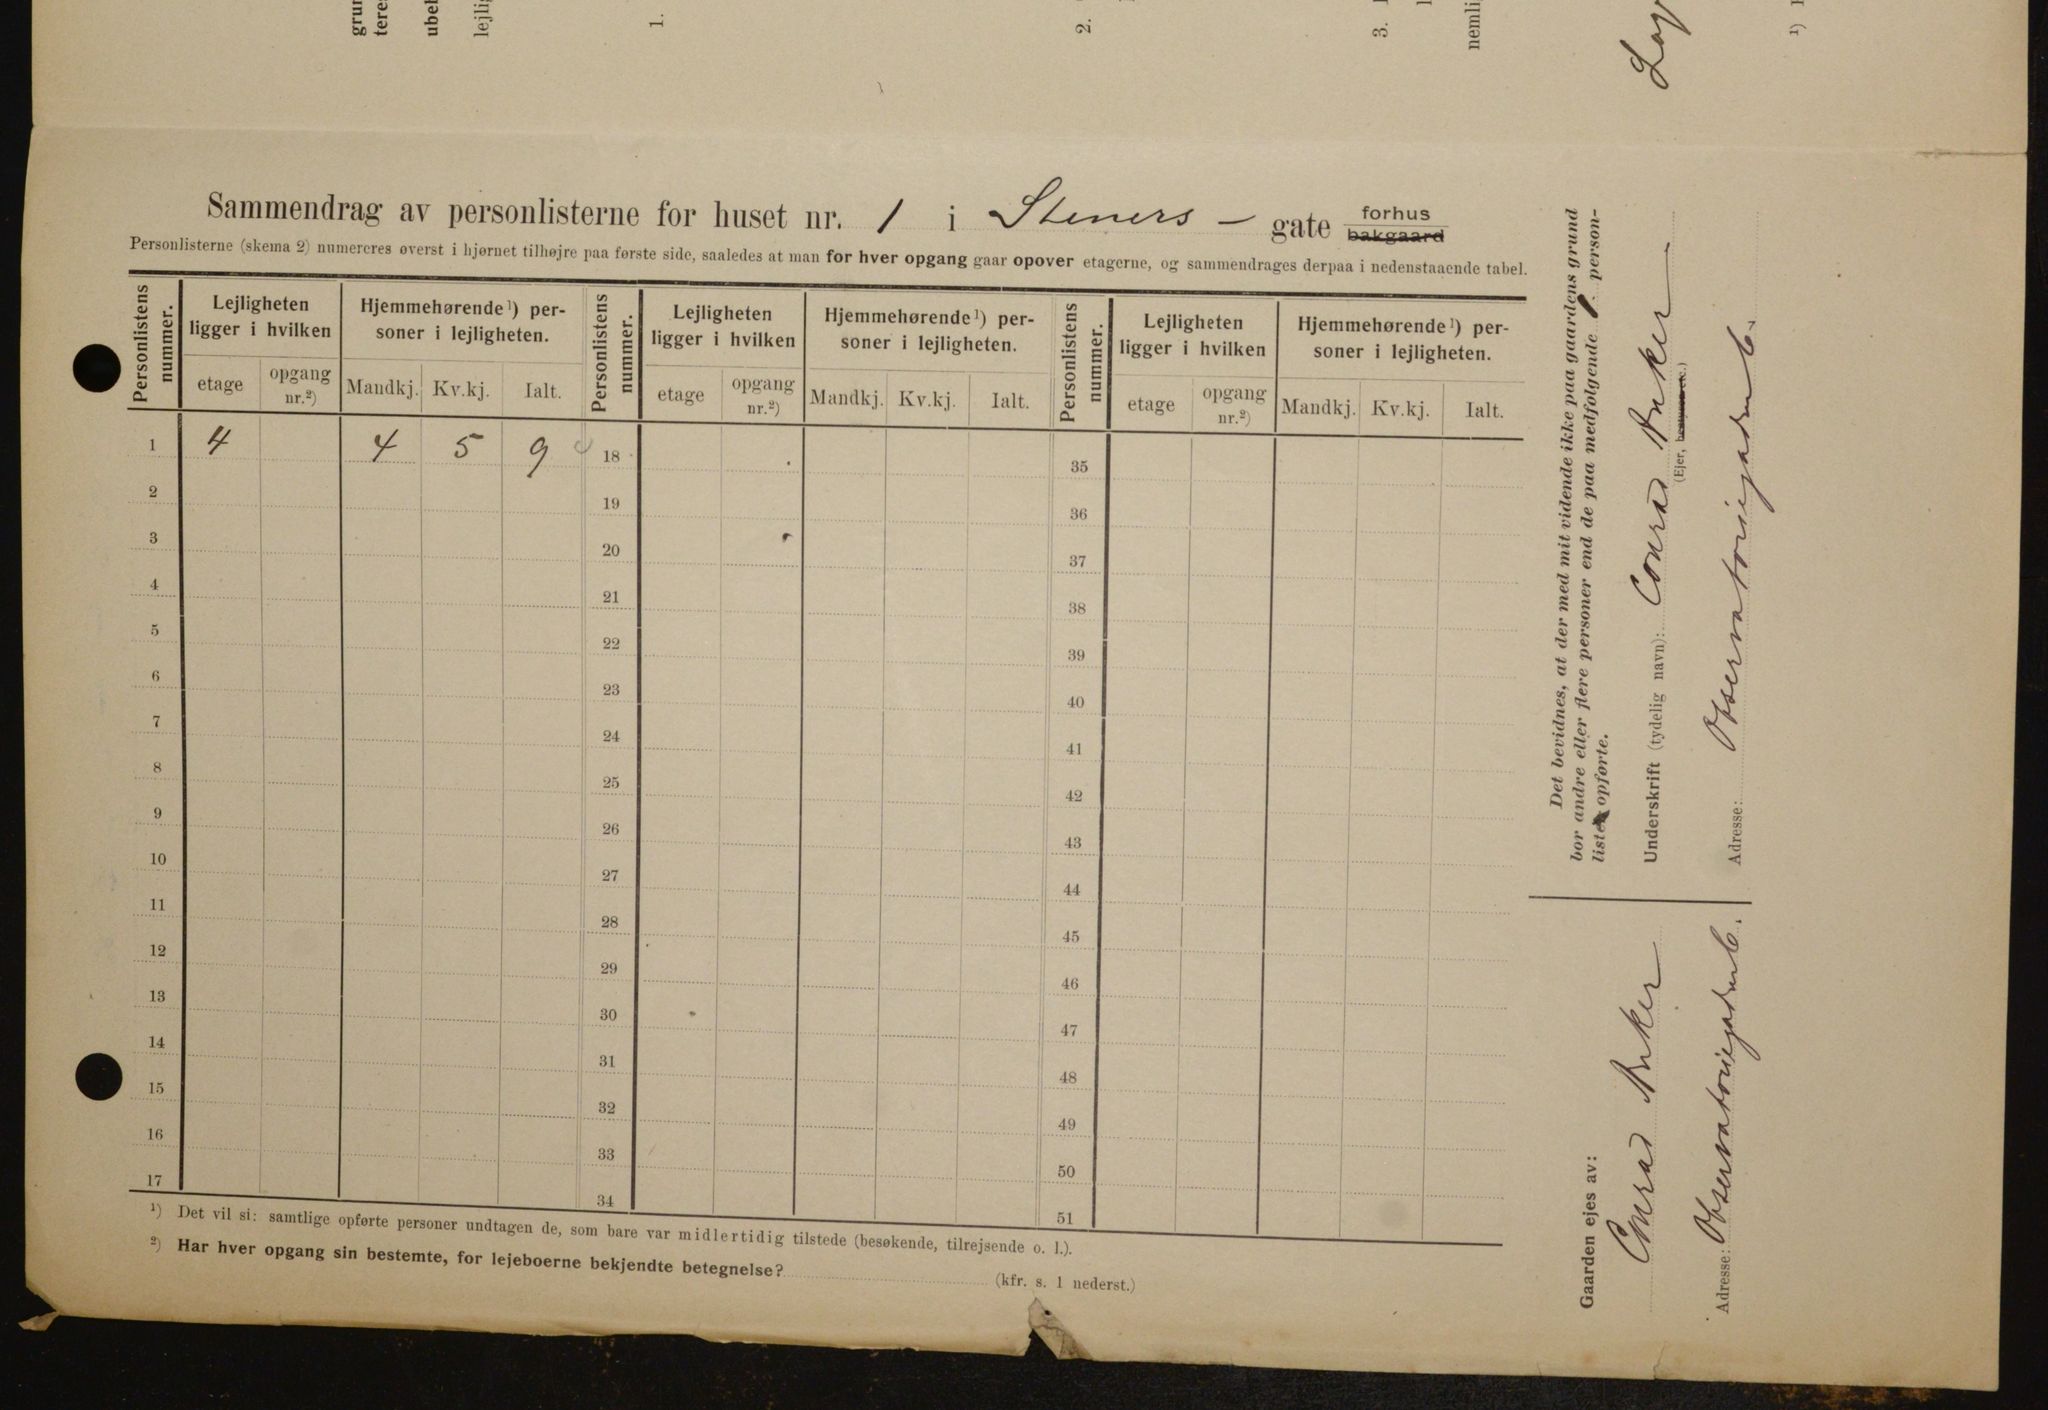 grun
teres
ubel
lejlig
1.
2.
3.
nemlig
1)
Sammendrag av personlisterne for huset nr. 1 i Steners - gate forhus
bakgaard
Personlisterne (skema 2) numereres øverst i hjørnet tilhøjre paa første side, saaledes at man for hver opgang gaar opover etagerne, og sammendrages derpaa i nedenstaaende tabel.
Personlistens nummer. Lejligheten ligger i hvilken Hjemmehørende 1) personer i lejligheten. Personlistens nummer. Lejligheten ligger i hvilken Hjemmehørende 1) personer i lejligheten. Personlistens nummer. Lejligheten ligger i hvilken Hjemmehørende 1) personer i lejligheten.
etage opgang nr.2) Mandkj. Kv.kj. Ialt. etage opgang nr.2) Mandkj. Kv.kj. Ialt. etage opgang nr.2) Mandkj. Kv.kj. Ialt.
1 4 4 5 9 18 35
2 19 36
3 20 37
4 21 38
5 22 39
6 23 40
7 24 41
8 25 42
9 26 43
10 27 44
11 28 45
12 29 46
13 30 47
14 31 48
15 32 49
16 33 50
17 34 51
1) Det vil si: samtlige opførte personer undtagen de, som bare var midlertidig tilstede (besøkende, tilrejsende o. l.).
2) Har hver opgang sin bestemte, for lejeboerne bekjendte betegnelse? (kfr. s. 1 nederst.)
Det bevidnes, at der med mit vidende ikke paa gaardens grund
bor andre eller flere personer end de paa medfølgende 1 person-
listen opførte.
Underskrift (tydelig navn): Conrad Anker
(Ejer, bestyrer etc.)
Adresse: Observatoriegaden 6.
Gaarden ejes av:
Conrad Anker
Adresse: Observatoriegaden 6.